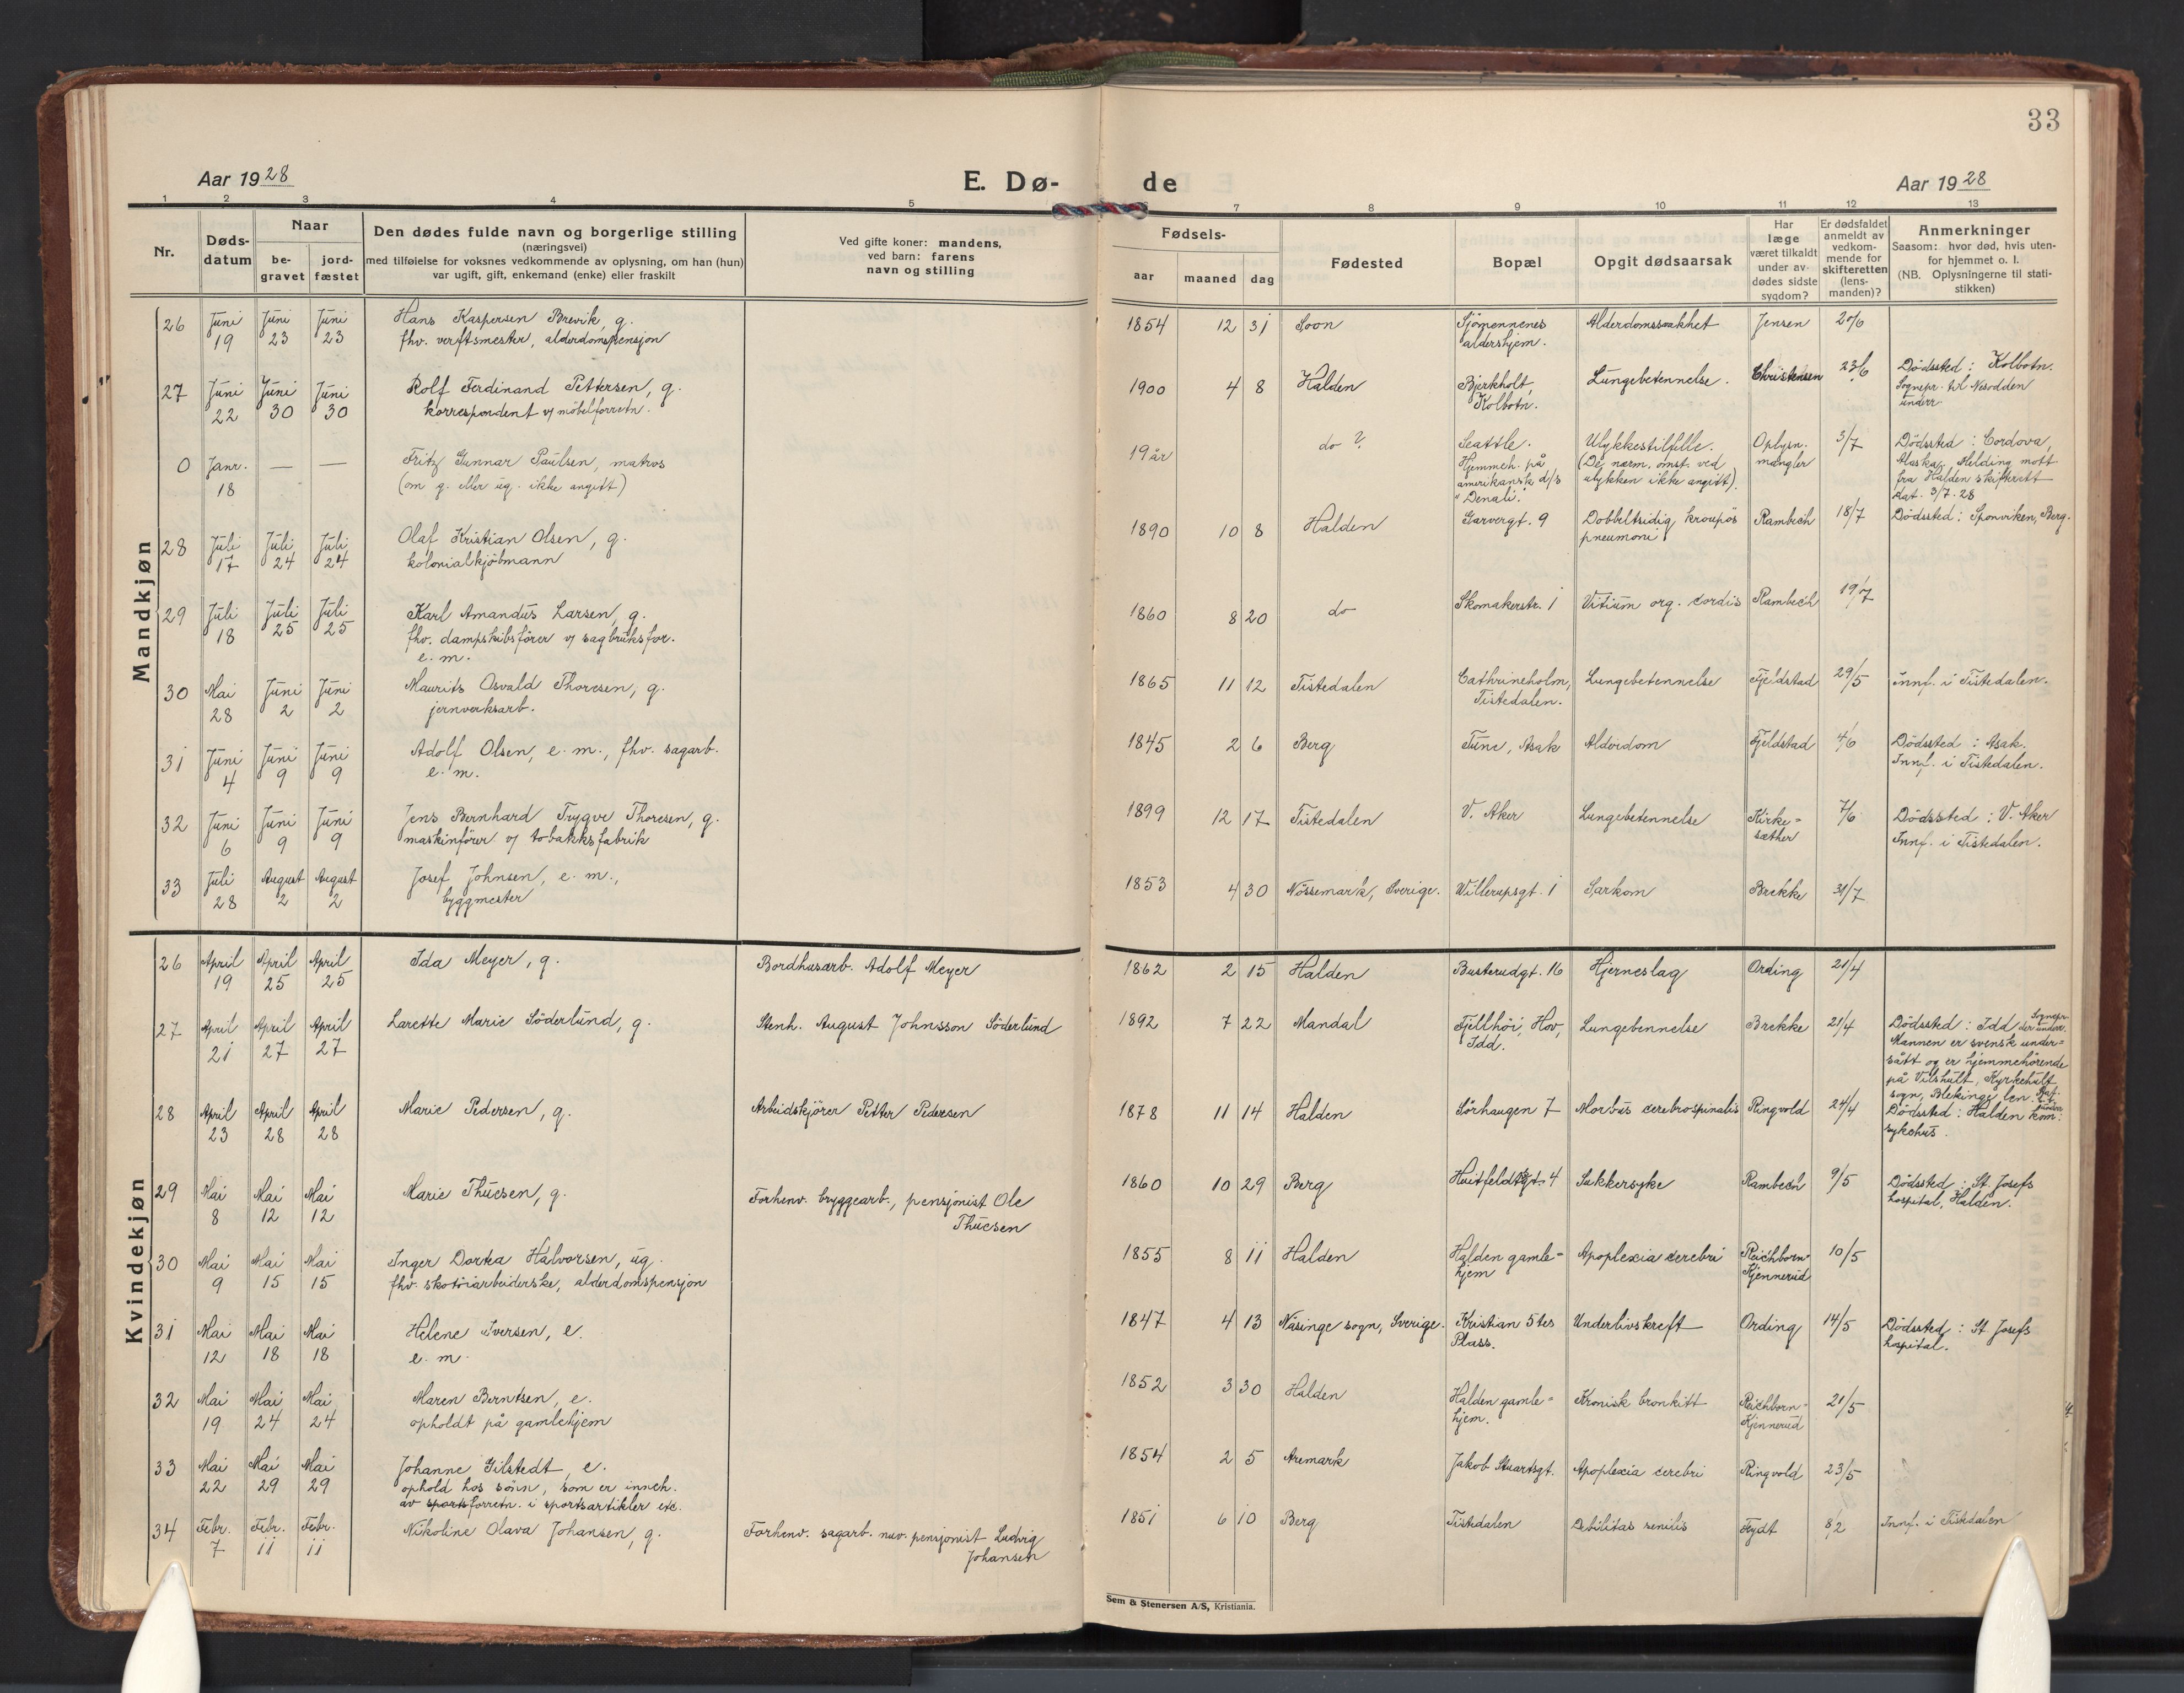 33
Aar 1928
E. Dø-
de
Aar 1928
1 2 3 4 5 6 7 8 9 10 11 12 13
Nr.
Døds-
datum
Naar
be-
gravet
jord-
fæstet
Den dødes fulde navn og borgerlige stilling
(næringsvei)
med tilføielse for voksnes vedkommende av oplysning, om han (hun)
var ugift, gift, enkemand (enke) eller fraskilt
Ved gifte koner: mandens,
ved barn: farens
navn og stilling
Fødsels-
aar maaned dag
Fødested
Bopæl
Opgit dødsaarsak
Har
læge
været tilkaldt
under av-
dødes sidste
sygdom?
Er dødsfaldet
anmeldt av
vedkom-
mende for
skifteretten
(lens-
manden)?
Anmerkninger
Saasom: hvor død, hvis uten-
for hjemmet o. l.
(NB. Oplysningerne til stati-
stikken)
Mandkjøn
26 Juni Juni Juni Hans Kaspersen Brevik, g. 1854 12 31 Soon Sjömennenes Alderdomssvakhet Jensen 20/6
19 23 23 fhv. verftsmester, alderdomspensjon aldershjem.
27 Juni Juni Juni Rolf Ferdinand Pettersen, g. 1900 4 8 Halden Bjerkholt, Lungebetennelse. Christensen 23/6 Dödssted: Kolbotn.
22 30 30 korrespondent v/ möbelforretn. Kolbotn. Sognepr. til Nesodden
underr.
0 Janr. — — Fritz Gunnar Paulsen, matros 19 år do ? Seattle. Ulykkestilfelle. Oplysn. 3/7 Dödssted: Cordova,
18 (om g. eller ug. ikke angitt) Hjemmeh. på (De nærm. omst. ved mangler Alaska. Melding mott.
amerikansk d/s ulykken ikke angitt). fra Halden skifterett
"Denali". dat. 3/7. 28
28 Juli Juli Juli Olaf Kristian Olsen, g. 1890 10 8 Halden Garvergt. 9 Dobbeltsidig kroupös Rambech 18/7 Dödssted: Sponviken, Berg.
17 24 24 kolonialkjöbmann pneumoni
29 Juli Juli Juli Karl Amandus Larsen, g. 1860 8 20 do Skomakerstr. 1 Vitium org. cordis Rambech 19/7
18 25 25 fhv. dampskibsförer v/ sagbruksfor.
e. m.
30 Mai Juni Juni Maurits Osvald Thoresen, g. 1865 11 12 Tistedalen Cathrineholm, Lungebetennelse Fjeldstad 29/5 Innf. i Tistedalen.
28 2 2 jernverksarb. Tistedalen.
31 Juni Juni Juni Adolf Olsen, e. m., fhv. sagarb. 1845 2 6 Berg Tune, Asak Alderdom Fjeldstad 4/6 Dödssted: Asak.
4 9 9 e. m. Innf. i Tistedalen.
32 Juni Juni Juni Jens Bernhard Trygve Thoresen, g. 1899 12 17 Tistedalen V. Aker Lungebetennelse Kirke= 7/6 Dödssted: V. Aker
6 9 9 maskinförer v/ tobakksfabrik sæther Innf. i Tistedalen.
33 Juli August August Josef Johnsen, e. m., 1853 4 30 Nössemark, Sverige. Willerupsgt. 1 Sarkom Brekke 31/7
28 2 2 byggmester
Kvindekjøn
26 April April April Ida Meyer, g. Bordhusarb. Adolf Meyer 1862 2 15 Halden Busterudgt. 16 Hjerneslag Ording 21/4
19 25 25
27 April April April Larette Marie Söderlund, g. Stenh. August Johnsson Söderlund 1892 7 22 Mandal Fjellhöi, Hov, Lungebennelse Brekke 21/4 Dödssted: Idd Sognepr. der underr.
21 27 27 Idd. Mannen er svensk under=
sått og er hjemmehörende
på Vilshult, Kyrkehult
sogn, Blekinge len.
28 April April April Marie Pedersen, g. Arbeidskjörer Petter Pedersen 1878 11 14 Halden Sörhaugen 7 Morbus cerebrospinalis Ringvold 24/4 Dödssted: Halden kom.
23 28 28 sykehus.
29 Mai Mai Mai Marie Thuesen, g. Forhenv. bryggearb., pensjonist Ole 1860 10 29 Berg Huitfeldtsgt. 4 Sukkersyke Rambech 9/5 Dödssted: St. Josefs
8 12 12 Thuesen hospital, Halden.
30 Mai Mai Mai Inger Dortea Halvorsen, ug. 1855 8 11 Halden Halden gamle= Apoplexia cerebri Reichborn= 10/5
9 15 15 fhv. skotöiarbeiderske, alderdomspensjon hjem Kjennerud
31 Mai Mai Mai Helene Iversen, e. 1847 4 13 Näsinge sogn, Sverige. Kristian 5tes Underlivskreft Ording 14/5 Dödssted: St Josefs
12 18 18 e. m. Plass. hospital.
32 Mai Mai Mai Maren Berntsen, e. 1852 3 30 Halden Halden gamle= Kronisk bronkitt Reichborn= 21/5
19 24 24 opholdt på gamlehjem hjem. Kjennerud
33 Mai Mai Mai Johanne Gilstedt, e. 1854 2 5 Aremark Jakob Stuartsgt. Apoplexia cerebri Ringvold 23/5
22 29 29 ophold hos sönn, som er inneh.
av sportsforretn. i sportsartikler etc.
34 Febr. Febr. Febr. Nikoline Olava Johansen, g. Forhenv. sagarb. nuv. pensjonist Ludvig 1851 6 10 Berg Tistedalen Debilitas senilis Frydt 8/2 Innf. i Tistedalen
7 11 11 Johansen
Sem & Stenersen A/S, Kristiania.